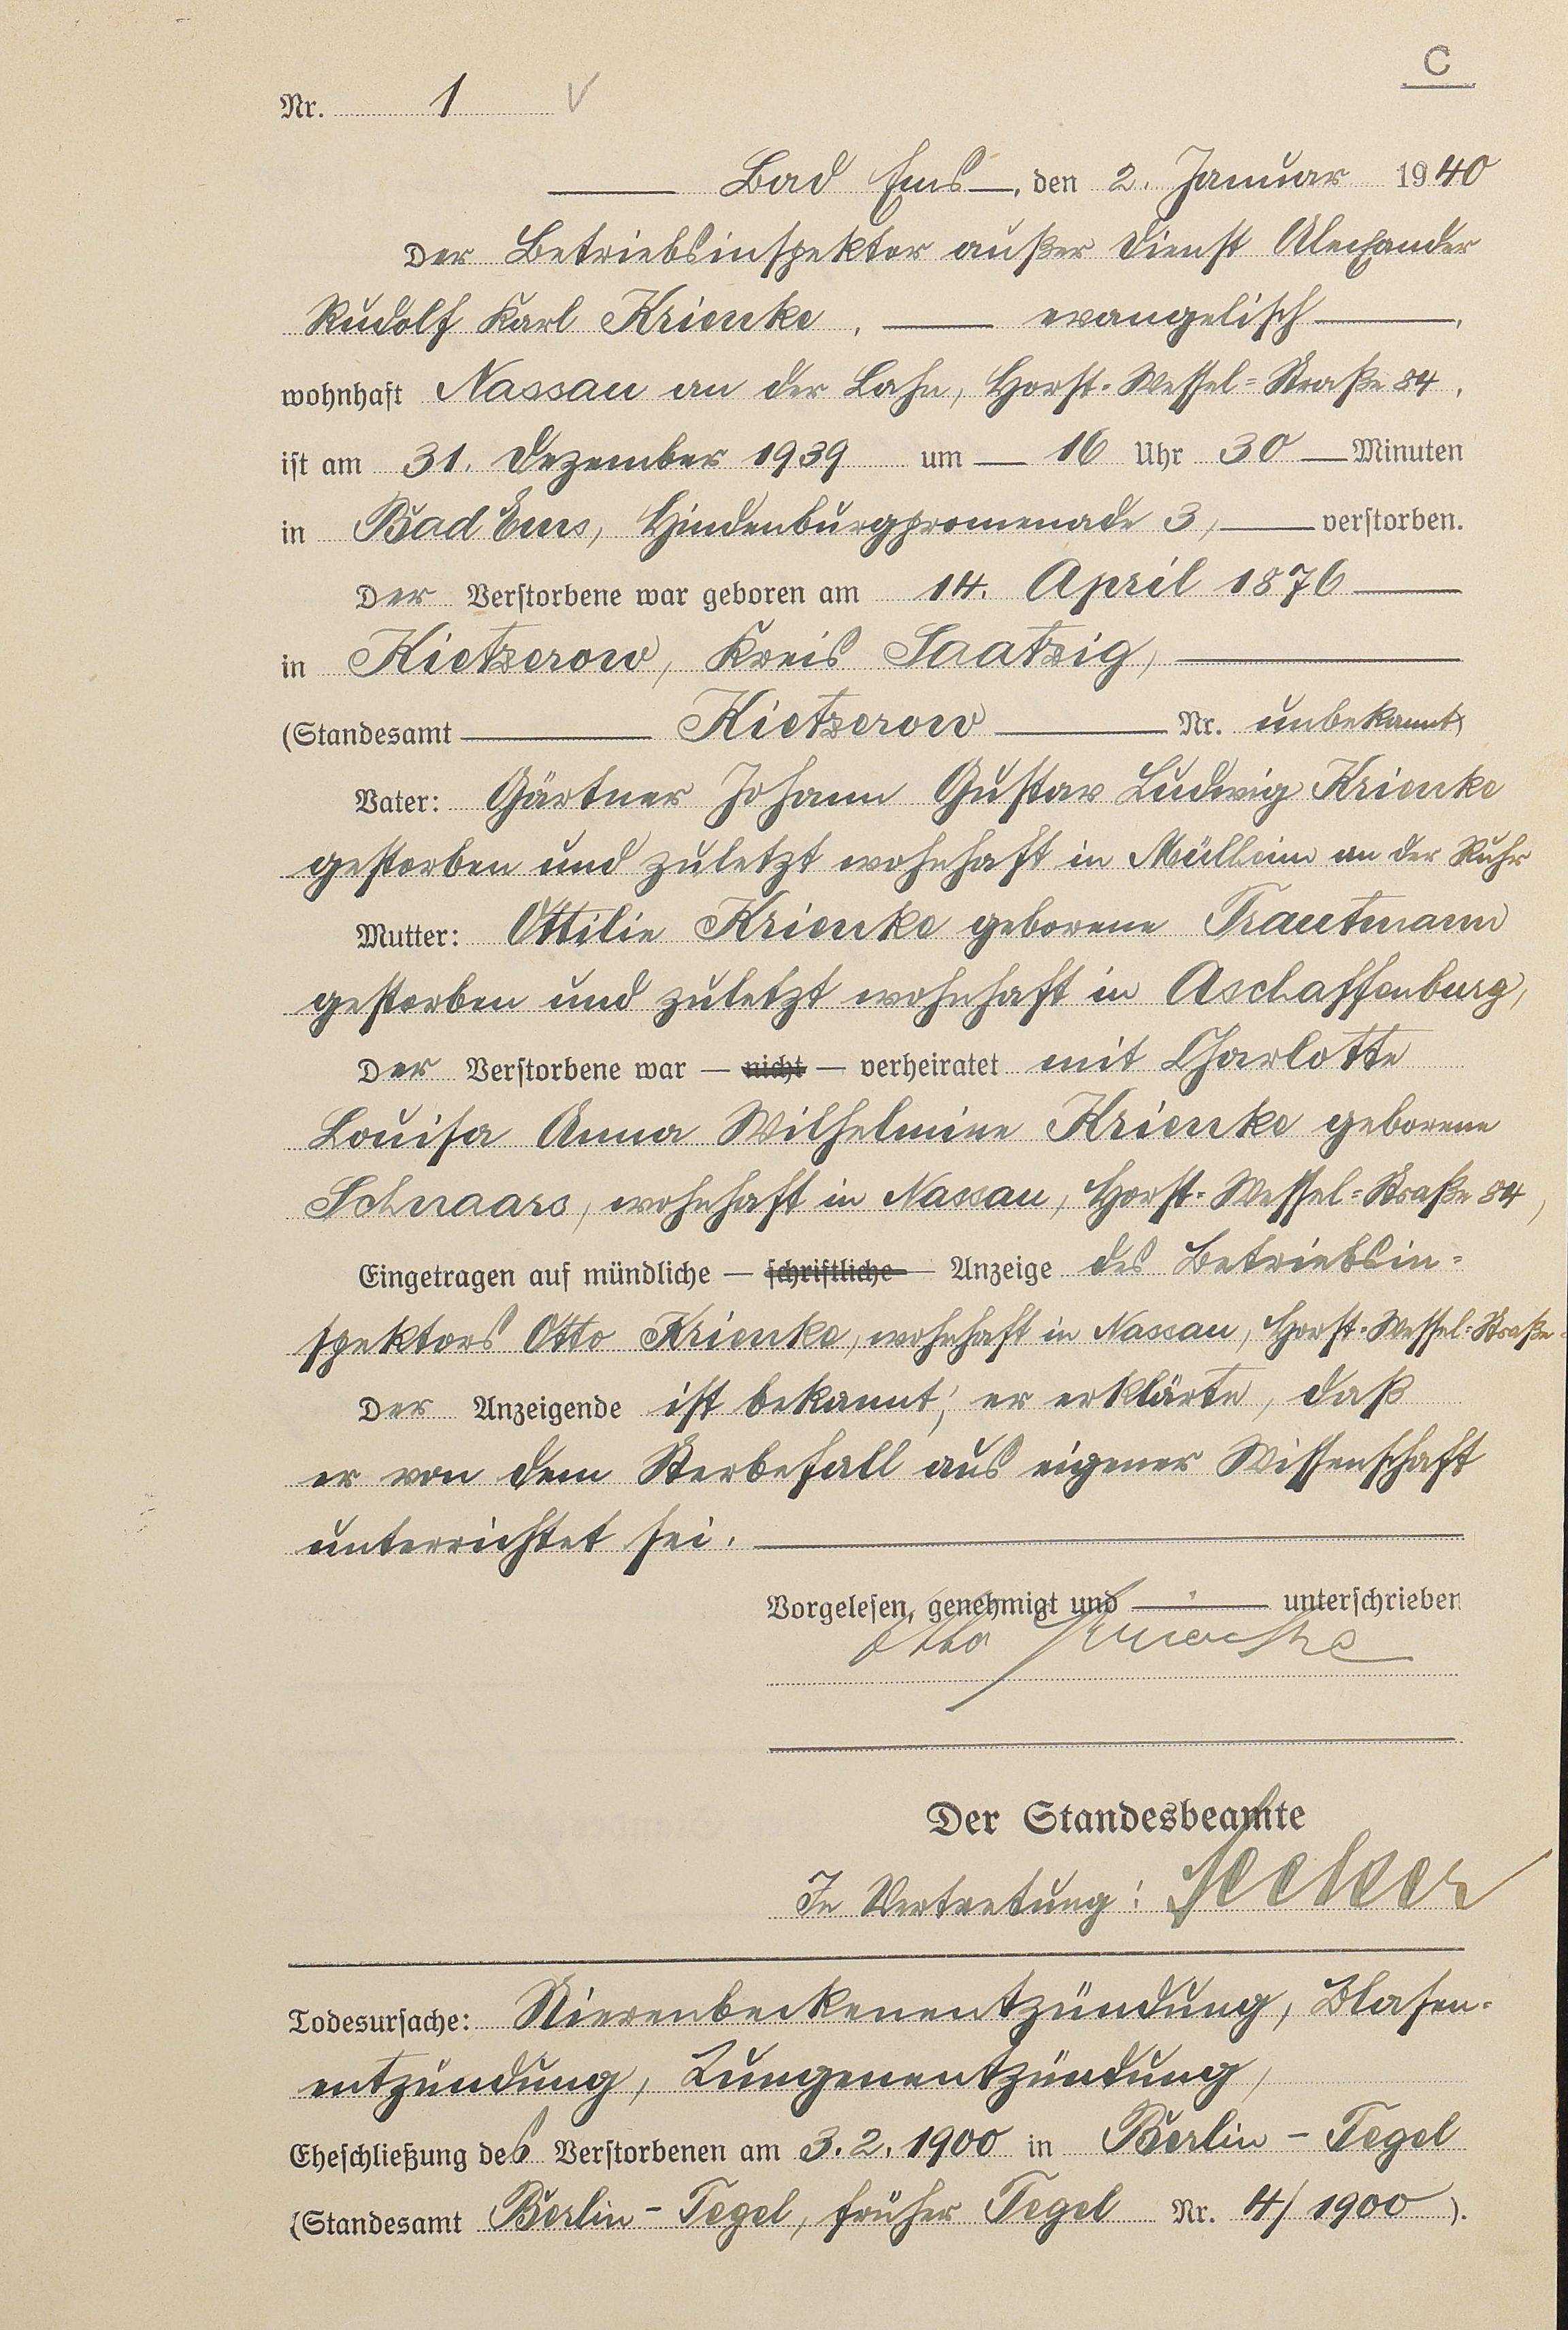 C
Nr. 1
Bad Ems, den 2. Januar 1940
Der Betriebsinspektor außer Dienst Alexander
Rudolf Karl Krienke, evangelisch,
wohnhaft Nassau an der Lahn, Horst-Wessel-Straße 84,
ist am 31. Dezember 1939 um 16 Uhr 30 Minuten
in Bad Ems, Hindenburgpromenade 3, verstorben.
Der Verstorbene war geboren am 14. April 1876
in Kietzerow, Kreis Saatzig,
(Standesamt Kietzerow Nr. unbekannt)
Vater: Gärtner Johann Gustav Ludwig Krienke
gestorben und zuletzt wohnhaft in Mülheim an der Ruhr
Mutter: Ottilie Krienke geborene Trautmann
gestorben und zuletzt wohnhaft in Aschaffenburg,
Der Verstorbene war — nicht — verheiratet mit Charlotte
Louisa Anna Wilhelmine Krienke geborene
Schnaars, wohnhaft in Nassau, Horst-Wessel-Straße 84,
Eingetragen auf mündliche — schriftliche — Anzeige des Betriebsin-
spektors Otto Krienke, wohnhaft in Nassau, Horst-Wessel-Straße
Der Anzeigende ist bekannt; er erklärte, daß
er von dem Sterbefall aus eigener Wissenschaft
unterrichtet sei.
Vorgelesen, genehmigt und unterschrieben
Otto Krienke
Der Standesbeamte
In Vertretung:
Todesursache: Nierenbeckenentzündung, Blasen-
entzündung, Lungenentzündung,
Eheschließung des Verstorbenen am 3.2.1900 in Berlin-Tegel
(Standesamt Berlin-Tegel, früher Tegel Nr. 4/1900).